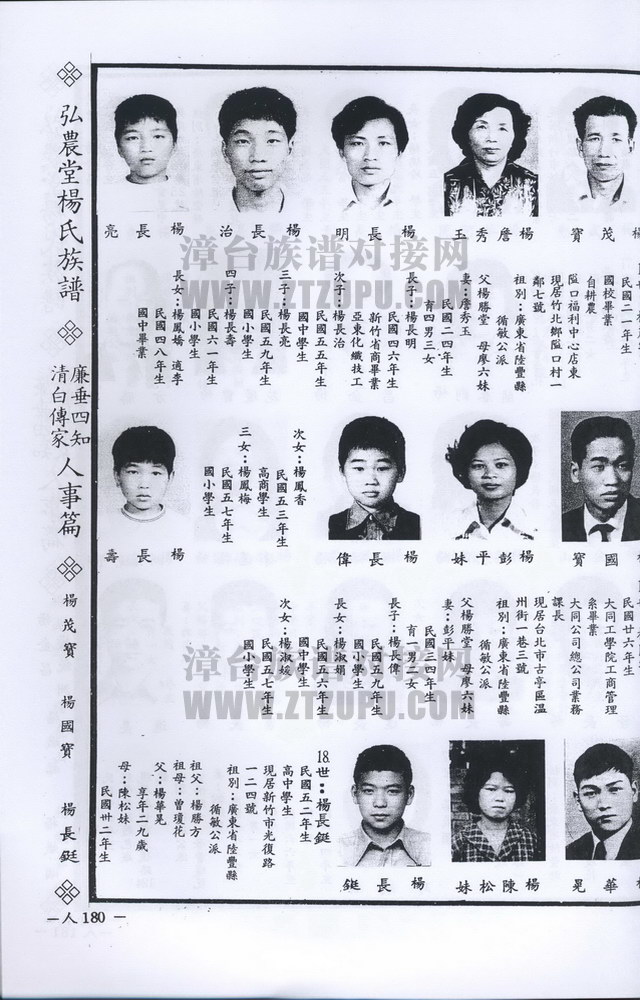 弘農堂楊氏族譜
廉垂四知
清白傳家
人事篇
楊茂寶
楊國寶
楊長鋌
楊茂寶
楊詹秀玉
楊長明
楊長治
楊長亮
民國二一年生
國校畢業
自耕農
隘口福利中心店東
現居竹北鄉隘口村一
鄰七號
祖別：廣東省陸豐縣
循敏公派
父楊勝堂 母廖六妹
妻：詹秀玉
民國二四年生
育四男三女
長子：楊長明
民國四六年生
新竹省商畢業
亞東化纖技工
次子：楊長治
民國五五年生
國中學生
三子：楊長亮
民國五九年生
國小學生
四子：楊長壽
民國六一年生
國小學生
長女：楊鳳嬌 適李
民國四八年生
國中畢業
楊國寶
楊彭平妹
楊長偉
次女：楊鳳香
民國五三年生
高商學生
三女：楊鳳梅
民國五七年生
國小學生
楊長壽
民國廿六年生
大同工學院工商管理
系畢業
大同公司總公司業務
課長
現居台北市古亭區溫
州街一巷三號
祖別：廣東省陸豐縣
循敏公派
父楊勝堂 母廖六妹
妻：彭平妹
民國三四年生
育一男二女
長子：楊長偉
民國五九年生
國小學生
長女：楊淑娟
民國五六年生
國中學生
次女：楊淑媛
民國五七年生
國小學生
楊華晃
楊陳松妹
楊長鋌
18.世：楊長鋌
民國五二年生
高中學生
現居新竹市光復路
一二四號
祖別：廣東省陸豐縣
循敏公派
祖父：楊勝方
祖母：曾瓊花
父：楊華晃
享年二九歲
母：陳松妹
民國卅二年生
漳台族谱对接网
WWW.ZTZUPU.COM
漳台族谱对接网
WWW.ZTZUPU.COM
－人 180 －